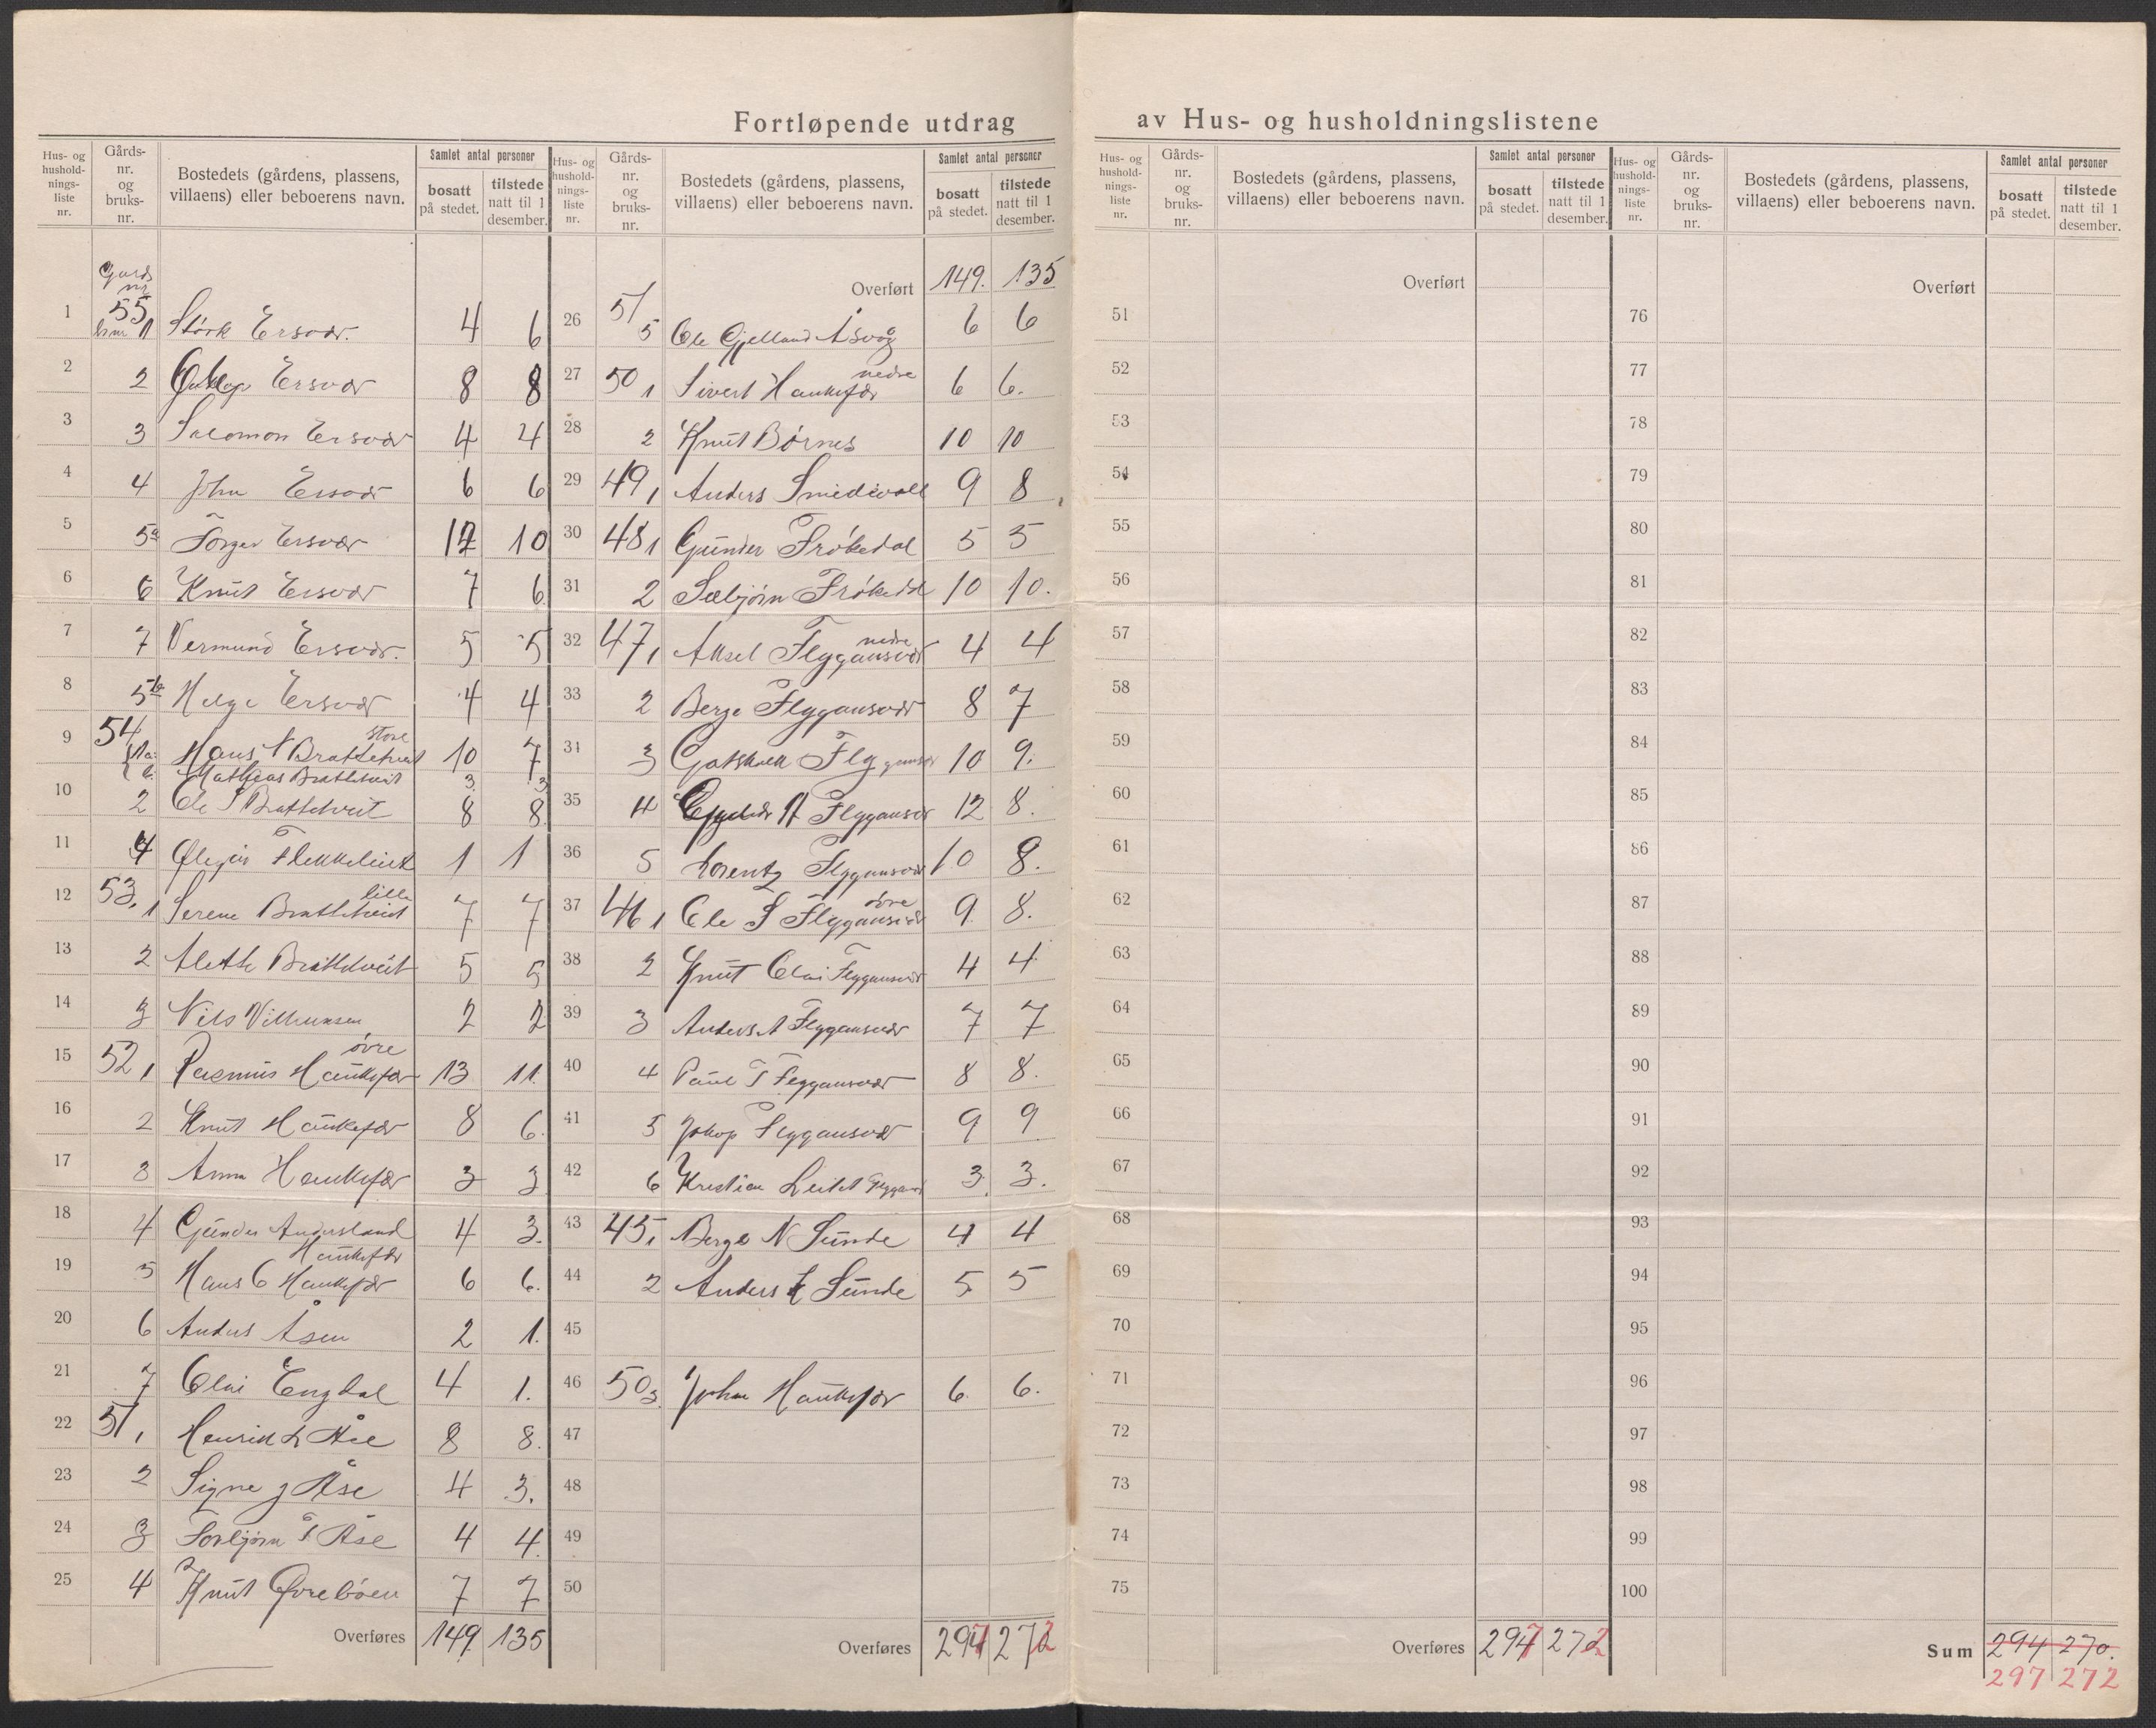 Fortløpende utdrag av Hus- og husholdningslistene
Hus- og hushold-nings-liste nr. Gårds-nr. og bruks-nr. Bostedets (gårdens, plassens, villaens) eller beboerens navn. Samlet antal personer bosatt på stedet. tilstede natt til 1 desember.
Hus- og hushold-nings-liste nr. Gårds-nr. og bruks-nr. Bostedets (gårdens, plassens, villaens) eller beboerens navn. Samlet antal personer bosatt på stedet. tilstede natt til 1 desember.
Hus- og hushold-nings-liste nr. Gårds-nr. og bruks-nr. Bostedets (gårdens, plassens, villaens) eller beboerens navn. Samlet antal personer bosatt på stedet. tilstede natt til 1 desember.
Hus- og hushold-nings-liste nr. Gårds-nr. og bruks-nr. Bostedets (gårdens, plassens, villaens) eller beboerens navn. Samlet antal personer bosatt på stedet. tilstede natt til 1 desember.
Gards nr
1 55 bnr 1 Størk Ersvær. 4 6
2 2 Ersvær 8 8
3 3 Salomon Ersvær 4 4
4 4 John Ersvær 6 6
5 5a Torger Ersvær 12 10
6 6 Knut Ersvær 7 6
7 7 Vermund Ersvær. 5 5
8 5b Helge Ersvær 4 4
9 54 1a. Hans Brattetveit store 10 7
b. Mathias Brattetveit 3. 3
10 2 Ole S Brattetveit 8 8.
11 4 1 1
12 53, 1 Serene Brattetveit lille 7 7
13 2 Alethe Brattetveit 5 5
14 3 Nils 2 2
15 52, 1 Rasmus Haukefær øvre 13 11.
16 2 Knut Haukefær 8 6.
17 3 Anna Haukefær 3 3
18 4 Gunder Andersland Haukefær 4 3.
19 5 Hans C Haukefær 6 6.
20 6 Anders Åsen 2 1.
21 7 Olai Engdal 4 1.
22 51, 1 Henrik Åse 8 8.
23 2 Signe J Åse 4 3.
24 3 Torbjørn T Åse 4 4.
25 4 Knut Øvrebøen 7 7
Overføres 149. 135
Overført 149. 135
26 51/5 Ole Gjelland Åsvåg 6 6
27 50 1 Sivert Haukefær nedre 6 6.
28 2 Knut Børnes 10 10
29 49, 1 Anders Smedevoll 9 8
30 48 1 Gunder Frøkedal 5 5
31 2 Sæbjørn Frøkedal 10 10.
32 47, 1 Aksel Flyggansvær nedre 4 4
33 2 Berge Flyggansvær 8 7
34 3 Gotskalk Flyggansvær 10 9.
35 4 A Flyggansvær 12 8.
36 5 Lorentz Flyggansvær 10 8.
37 46 1 Ole S Flyggansvær øvre 9. 8.
38 2 Knut Olai Flyggansvær 4 4
39 3 Anders A Flyggansvær 7 7
40 4 Paul T Flyggansvær 8 8.
41 5 Jakop Flyggansvær 9 9
42 6 Kristian Leitet 3. 3.
43 45, 1 Berge N Sunde 4 4
44 2 Anders Sunde 5 5
45
46 50 3. Johan Haukefær 6. 6.
47
48
49
50
Overføres 297 272
Overført
51
52
53
54
55
56
57
58
59
60
61
62
63
64
65
66
67
68
69
70
71
72
73
74
75
Overføres 297 272
Overført
76
77
78
79
80
81
82
83
84
85
86
87
88
89
90
91
92
93
94
95
96
97
98
99
100
Sum 294 270.
297 272